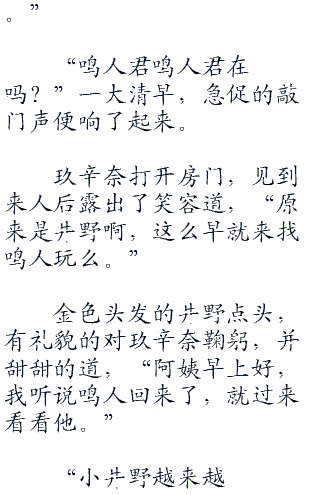 。”
“鸣人君鸣人君在
吗？”一大清早，急促的敲
门声便响了起来。
玖辛奈打开房门，见到
来人后露出了笑容道，“原
来是井野啊，这么早就来找
鸣人玩么。”
金色头发的井野点头，
有礼貌的对玖辛奈鞠躬，并
甜甜的道，“阿姨早上好，
我听说鸣人回来了，就过来
看看他。”
“小井野越来越